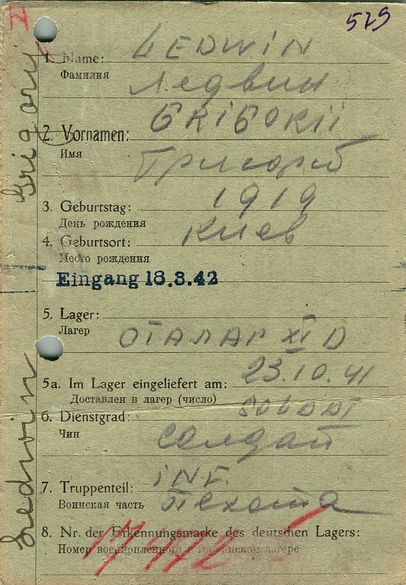 529
1. Name: LEDWIN
Фамилия Ледвин
2. Vornamen: GRIGORII
Имя Григорий
3. Geburtstag: 1919
День рождения
4. Geburtsort: Киев
Место рождения
Eingang 18.8.42
5. Lager:
Лагер ОТАЛАГ XI D
5a. Im Lager eingeliefert am: 23.10.41
Доставлен в лагер (число)
6. Dienstgrad: SOLDAT
Чин Солдат
7. Truppenteil: INF.
Воинская часть Пехота
8. Nr. der Erkennungsmarke des deutschen Lagers:
Номер военнопленного в германском лагере
Ledwin Grigorij